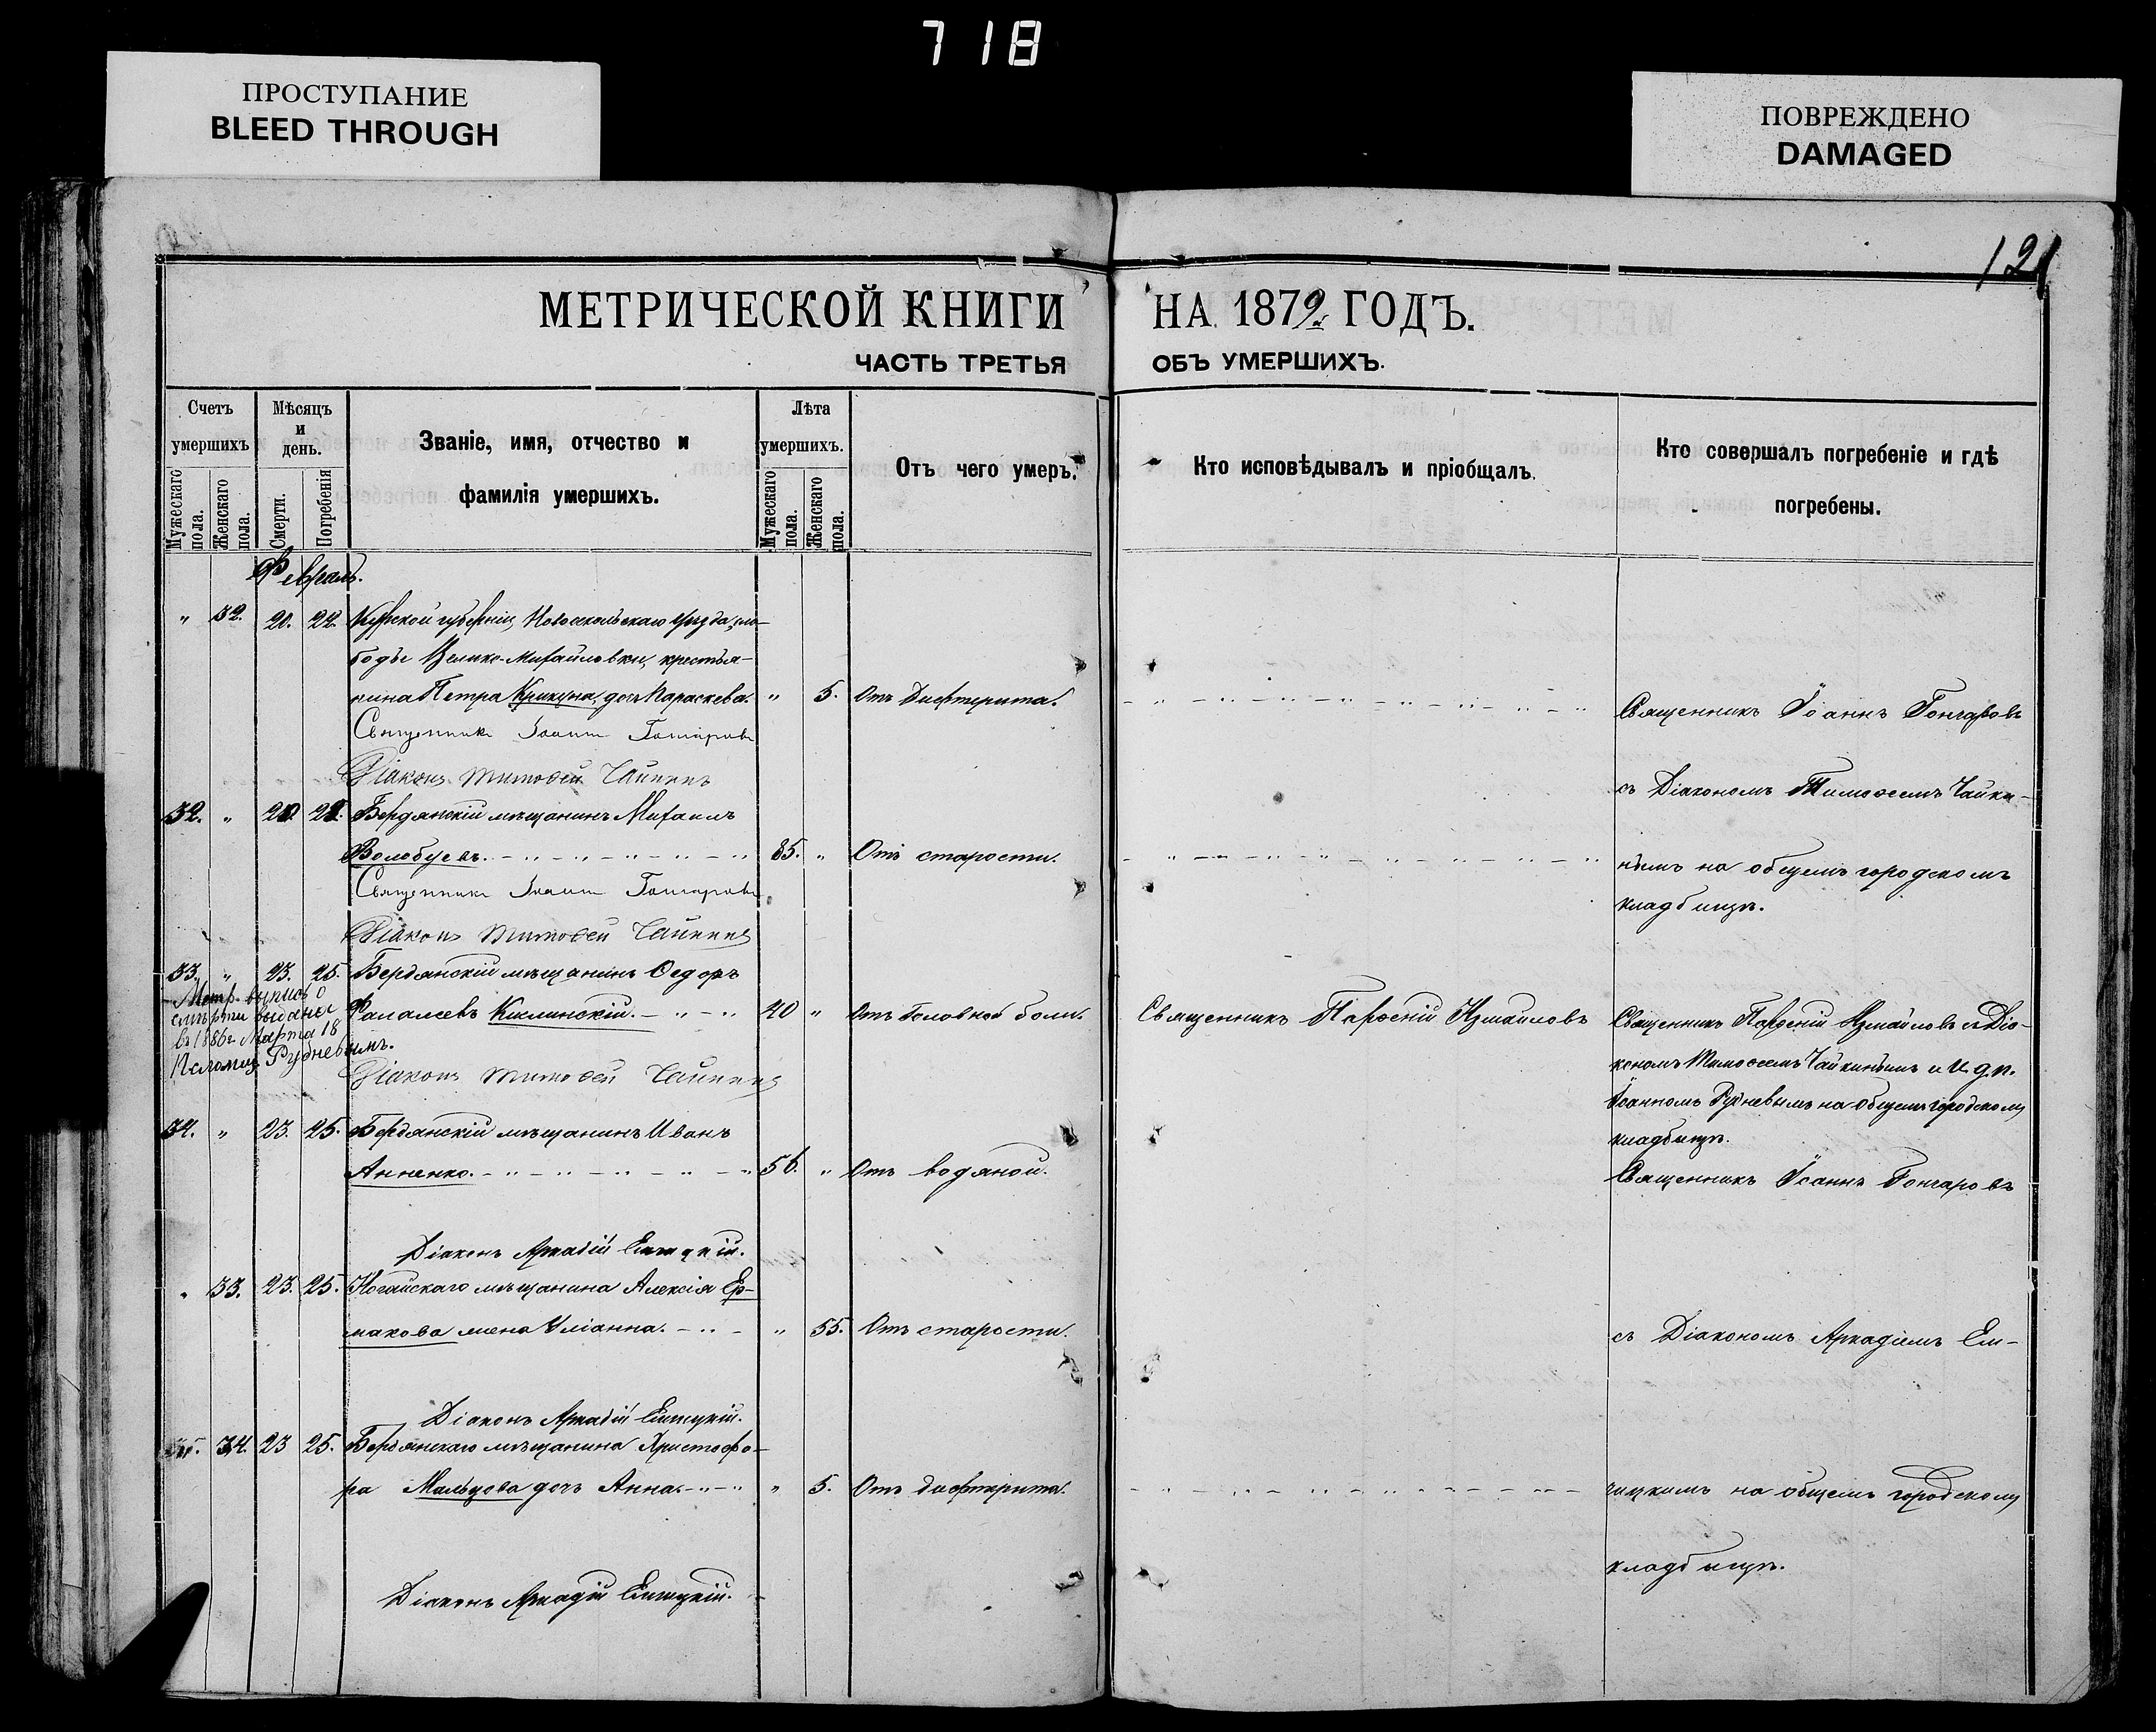 718
ПРОСТУПАНИЕ
BLEED THROUGH
ПОВРЕЖДЕНО
DAMAGED
121
МЕТРИЧЕСКОЙ КНИГИ НА 1879 ГОДЪ.
ЧАСТЬ ТРЕТЬЯ ОБЪ УМЕРШИХЪ.
Счетъ умершихъ
Мужескаго пола.
Женскаго пола.
Мѣсяцъ и день.
Смерти.
Погребенія
Званіе, имя, отчество и фамилія умершихъ.
Лѣта умершихъ.
Мужескаго пола.
Женскаго пола.
Отъ чего умеръ.
Кто исповѣдывалъ и пріобщалъ.
Кто совершалъ погребеніе и гдѣ погребены.
Февраль.
" 32. 20. 22. Курской губерніи, Новооскольскаго уѣзда, сло-
бодѣ Велико-Михайловки, крестья-
нина Петра Крикуна, дочь Параскева. " 5. Отъ Дифтерита.
Священникъ Іоаннъ Гончаровъ
Священникъ Іоаннъ Гончаровъ
Діаконъ Тимоѳей Чайкинъ
съ Діакономъ Тимоѳеемъ Чайки-
32. " 20. 22. Бердянскій мѣщанинъ Михаилъ
Волобуевъ. 85. " Отъ старости.
нымъ на общемъ городскомъ
кладбищѣ.
Священникъ Іоаннъ Гончаровъ
Діаконъ Тимоѳей Чайкинъ
33. " 23. 25. Бердянскій мѣщанинъ Ѳедоръ
Фалалеевъ Кислинскій. 40 " Отъ Головной боли.
Метр. выпись о
смерти выдана
въ 1886 г. Марта 18
Псаломщ. Рудневымъ.
Священникъ Парѳеній Измаиловъ
Священникъ Парѳеній Измайловъ съ Діа-
кономъ Тимоѳеемъ Чайкинымъ и И. д. п.
Іоанномъ Рудневымъ на общемъ городскомъ
кладбищѣ.
Діаконъ Тимоѳей Чайкинъ
34. " 23. 25. Бердянскій мѣщанинъ Иванъ
Анненко. 56. " Отъ водяной.
Священникъ Іоаннъ Гончаровъ
Діаконъ Аркадій
" 33. 23. 25. Ногайскаго мѣщанина Алексія Ер-
макова жена Уліанна. " 55. Отъ старости.
съ Діакономъ Аркадіемъ
Діаконъ Аркадій
34. 23 25. Бердянскаго мѣщанина Христофо-
ра Мальцова дочь Анна. " 5. Отъ дифтерита.
на общемъ городскомъ
кладбищѣ.
Діаконъ Аркадій